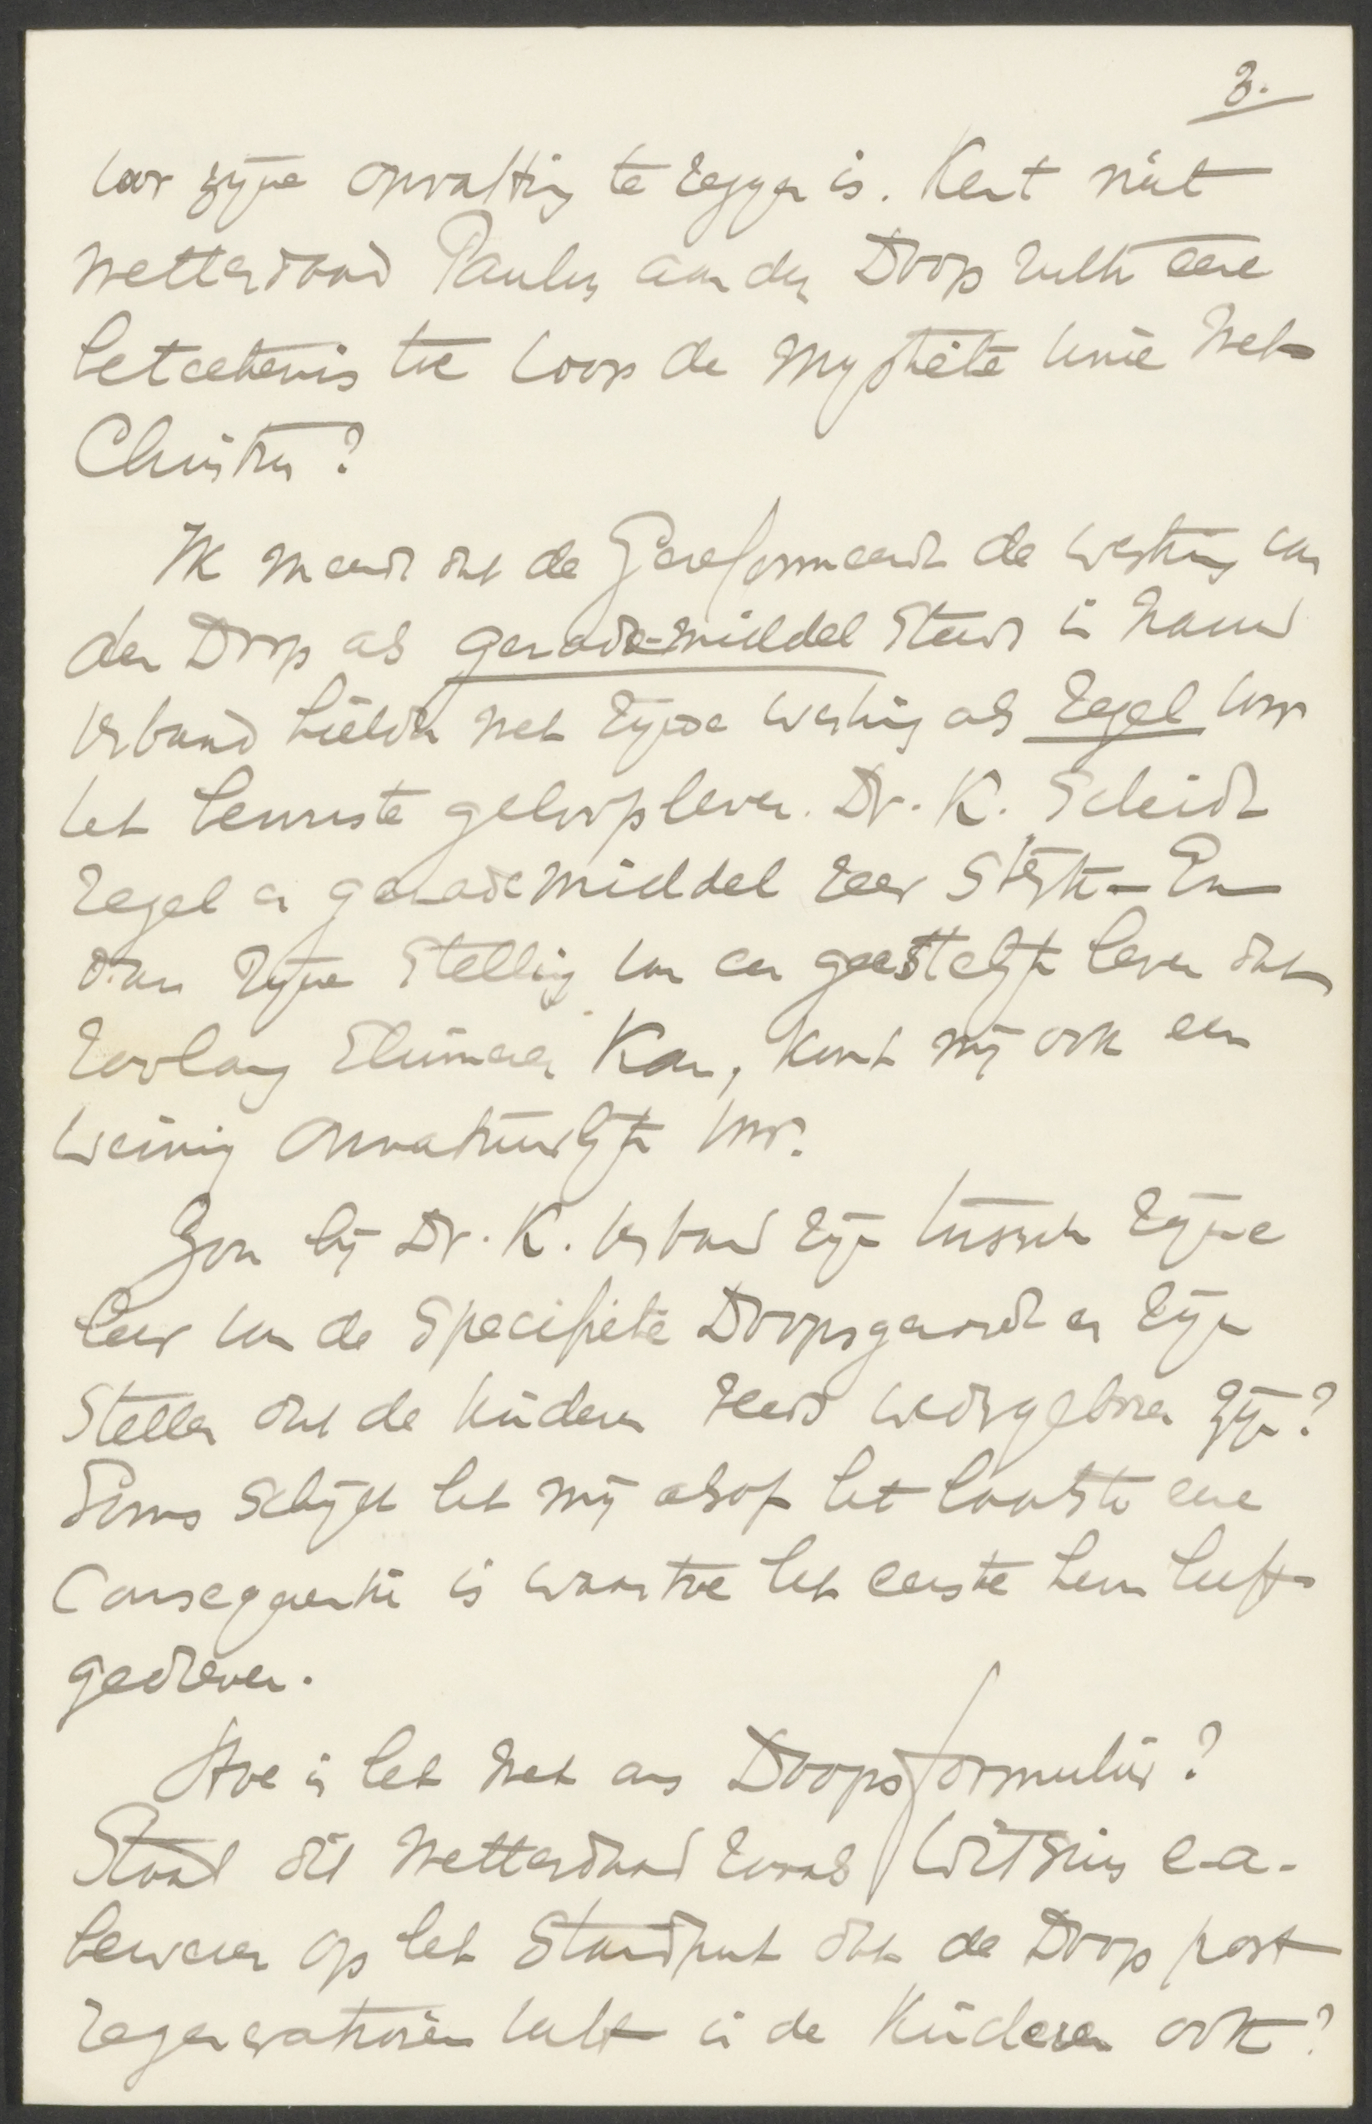 3.
voor zijne opvatting te zeggen is. Kent niet
metterdaad Paulus aan den Doop zulk eene
beteekenis toe voor de mystieke unie met
Christus?
Ik meende dat de Gereformeerden de werking van
den Doop als genade-middel steeds in nauw
verband hielden met zijne werking als zegel voor
het bewuste geloofsleven. Dr. K. scheidt
zegel en genademiddel zeer sterk - En
dan zijne stelling van een geestelijk leven dat
zoolang sluimeren kan, komt mij ook een
weinig onnatuurlijk voor.
Zou bij Dr. K. verband zijn tusschen zijne
leer van de specifieke Doopsgenade en zijn
stellen dat de kinderen reeds wedergeboren zijn?
Soms schijnt het mij alsof het laatste eene
consequentie is waartoe het eerste hem heeft
gedreven.
Hoe is het met ons Doopsformulier?
Staat dit metterdaad zooals Witsius e.a.
beweren op het standpunt dat de Doop post
regenerationem valt in de kinderen ook?